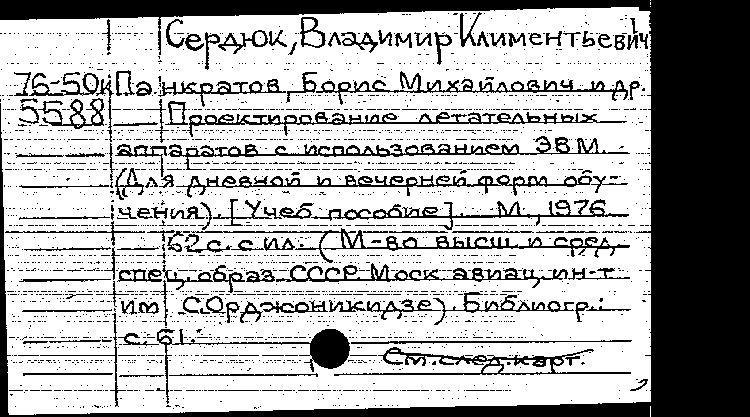 Сердюк, Владимир Климентьевич
76-50к Панкратов, Борис Михайлович и др.
5588 Проектирование летательных
аппаратов с использованием ЭВМ.
(Для дневной и вечерней форм обу-
чения). [Учеб. пособие]. М., 1976
62 с. с ил. (М-во высш. и сред.
спец. образ. СССР. Моск авиац. ин-т
им С.Орджоникидзе). Библиогр.:
с. 61.
См. след. карт.